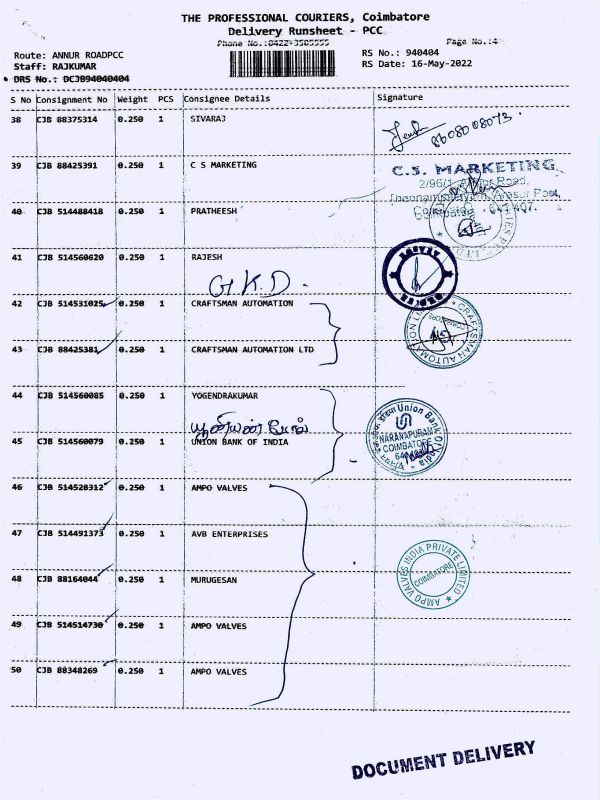 THE PROFESSIONAL COURIERS, Coimbatore
Delivery Runsheet - PCC
Phone No.:0422-3505555 Page No.:4
Route: ANNUR ROADPCC RS No.: 940404
Staff: RAJKUMAR RS Date: 16-May-2022
DRS No.: DCJB94040404
S No Consignment No Weight PCS Consignee Details Signature
38 CJB 88375314 0.250 1 SIVARAJ
39 CJB 88425391 0.250 1 C S MARKETING
C.S. MARKETING
2/96/1, Road,
Post,
Coimbatore 641 407.
40 CJB 514488418 0.250 1 PRATHEESH
41 CJB 514560620 0.250 1 RAJESH
G.K.D.
42 CJB 514531025 0.250 1 CRAFTSMAN AUTOMATION
CRAFTSMAN AUTOMATION
43 CJB 88425381 0.250 1 CRAFTSMAN AUTOMATION LTD
44 CJB 514560085 0.250 1 YOGENDRAKUMAR
Union Bank Of India
NARANAPURAM
COIMBATORE
45 CJB 514560079 0.250 1 UNION BANK OF INDIA
46 CJB 514528312 0.250 1 AMPO VALVES
47 CJB 514491373 0.250 1 AVB ENTERPRISES
AMPO VALVES INDIA PRIVATE LIMITED
COIMBATORE
48 CJB 88164044 0.250 1 MURUGESAN
49 CJB 514514730 0.250 1 AMPO VALVES
50 CJB 88348269 0.250 1 AMPO VALVES
DOCUMENT DELIVERY